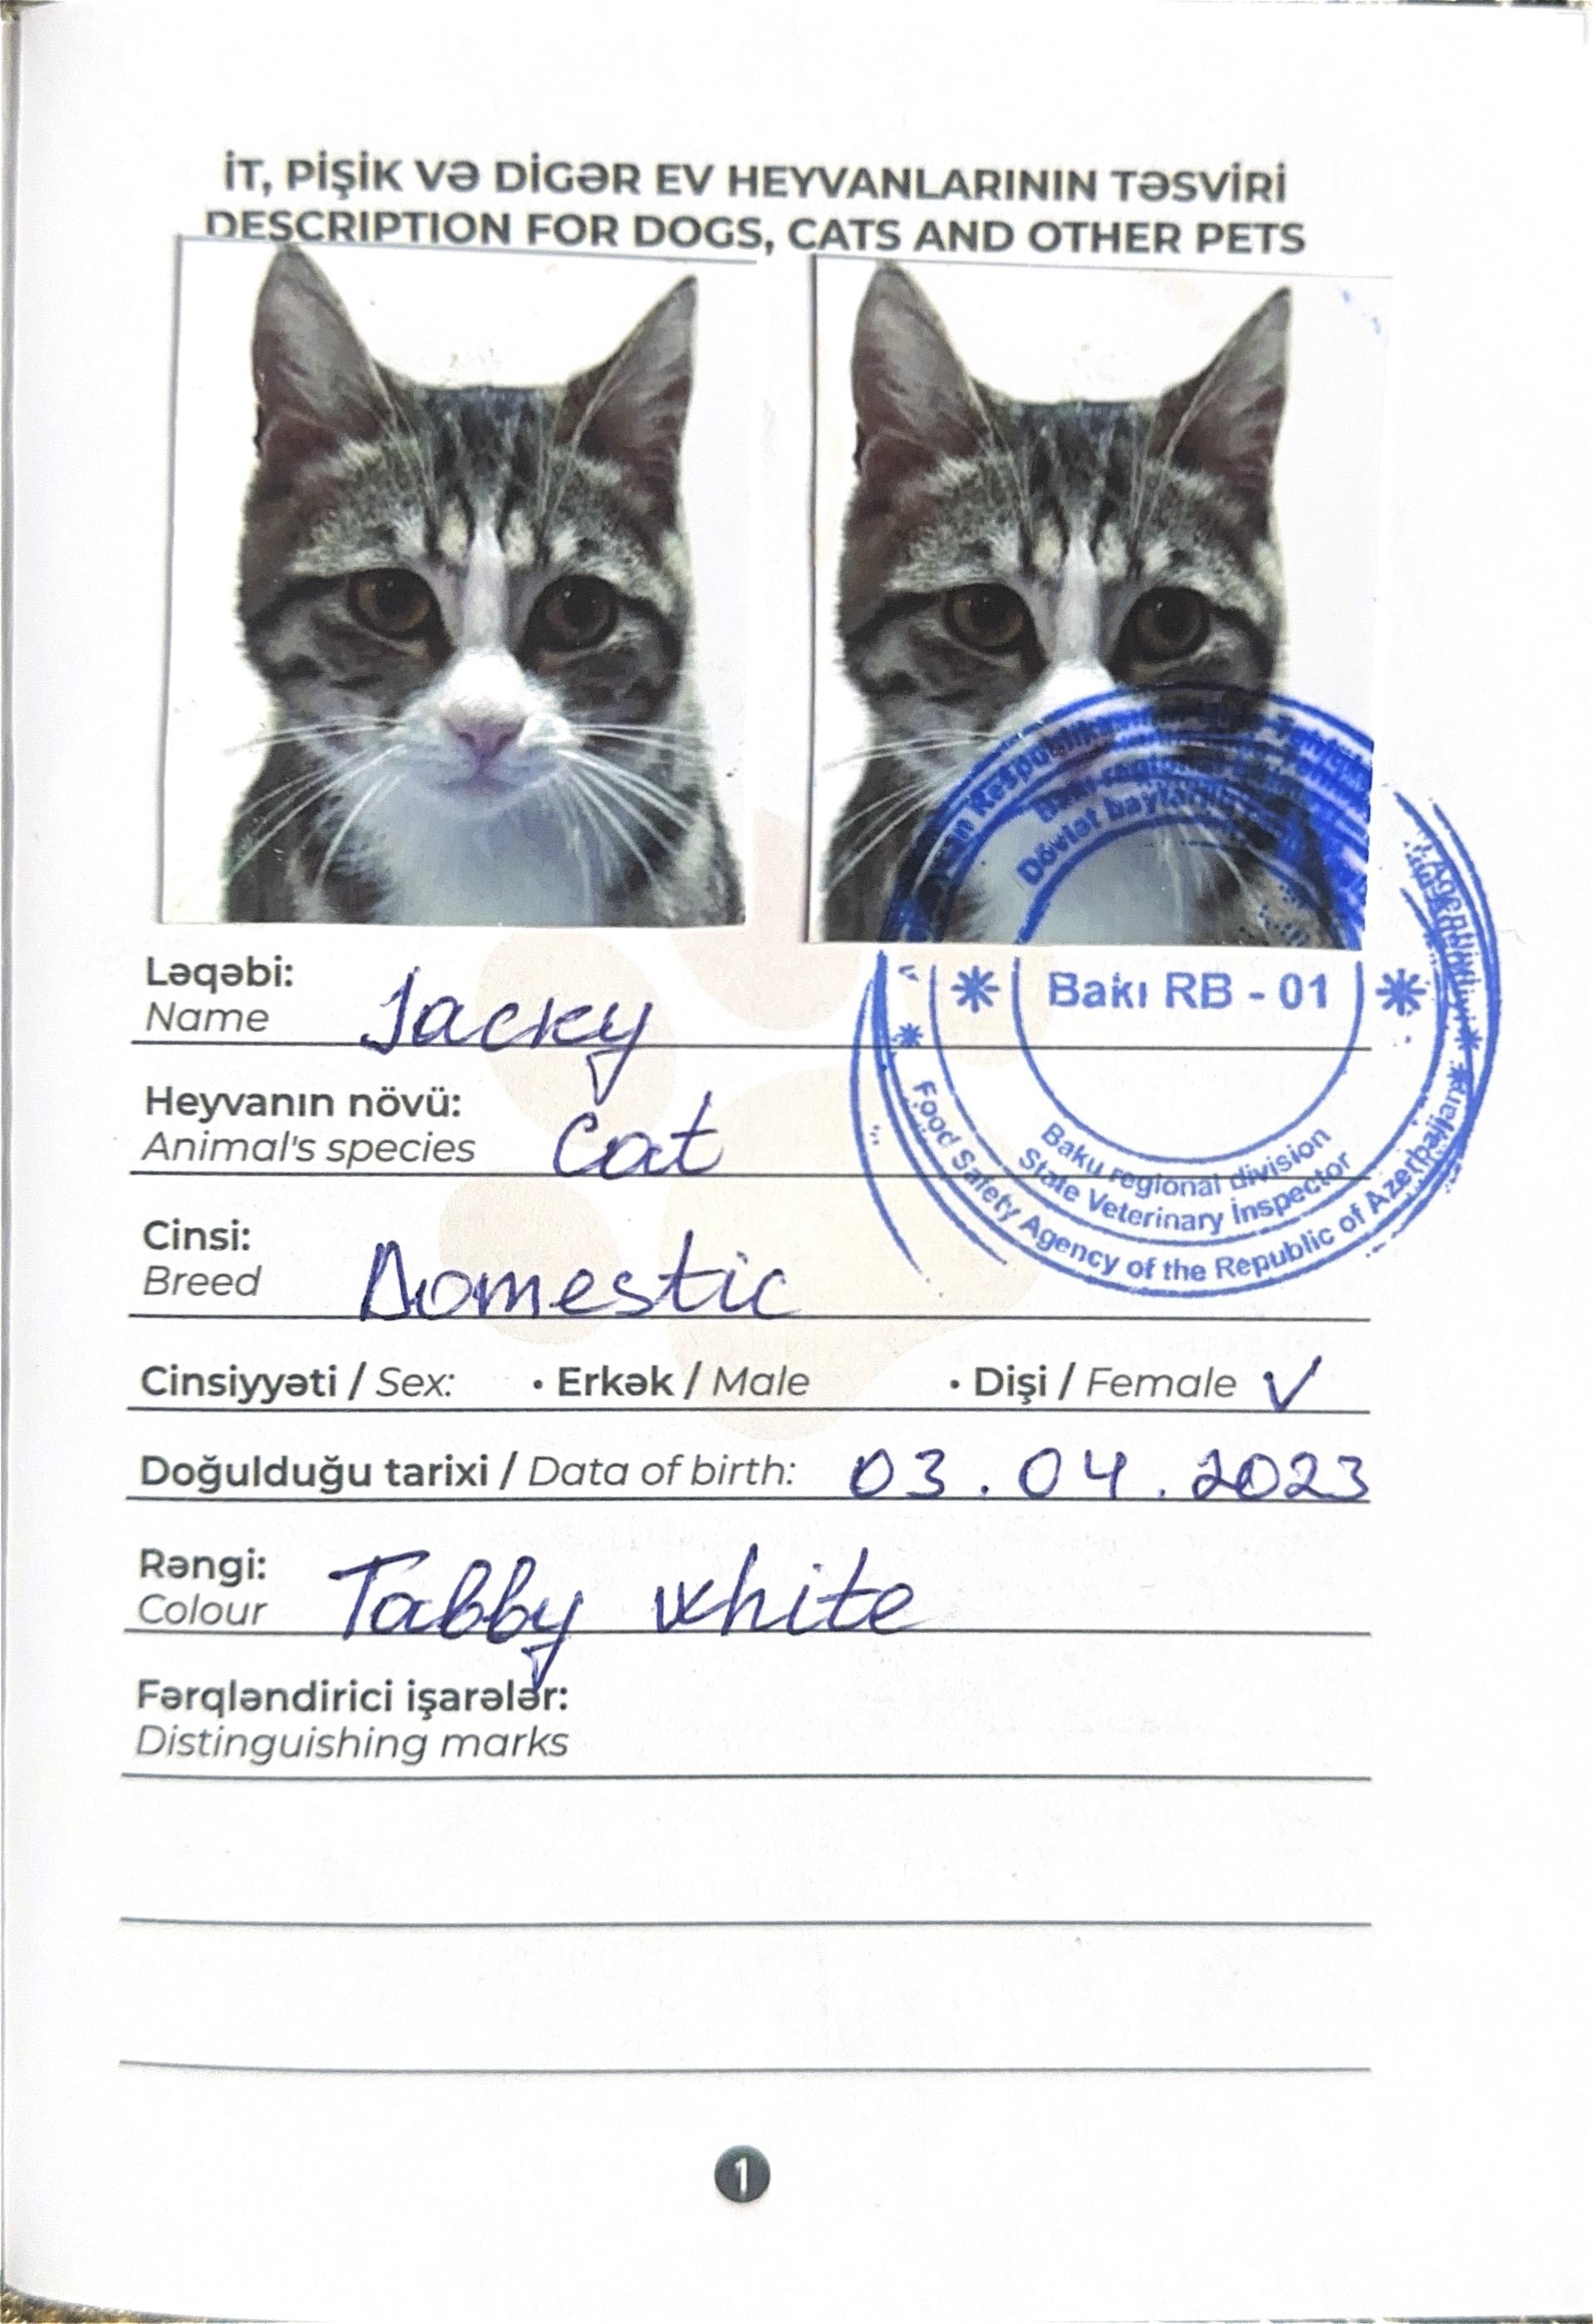 İT, PİŞİK VƏ DİGƏR EV HEYVANLARININ TƏSVİRİ
DESCRIPTION FOR DOGS, CATS AND OTHER PETS
Dövlət baytarlıq
Ləqəbi:
Name Jacky
Bakı RB - 01
Heyvanın növü:
Animal's species Cat
Baku regional division
State Veterinary İnspector
Food Safety Agency of the Republic of Azerbaijan
Cinsi:
Breed Domestic
Cinsiyyəti / Sex: • Erkək / Male • Dişi / Female ✓
Doğulduğu tarixi / Data of birth: 03.04.2023
Rəngi:
Colour Tabby white
Fərqləndirici işarələr:
Distinguishing marks
1